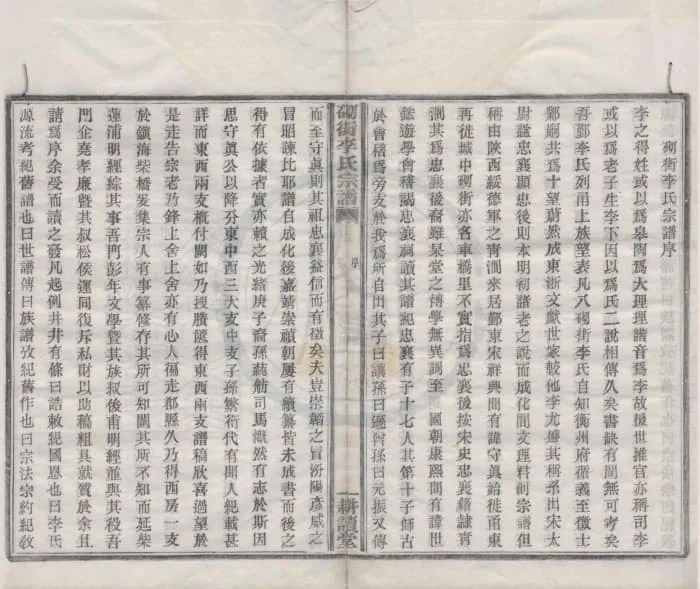 砌街李氏宗譜序
李之得姓或以爲皋陶爲大理理諧音爲李故後世推官亦稱司李
或以爲老子生李下因以爲氏二說相傳久矣書缺有間無可考矣
吾鄞李氏列甬上族望表凡八砌街李氏自知衢州府循義至徵士
鄴嗣共爲十望蔚然成東浙文獻世家較他李尤盛其稱系出宋太
尉謚忠襄顯忠後則本明初諸老之說而成化間文理料創宗譜但
稱由陝西綏德軍之靑澗來居鄞東宋祥興間有諱守眞始徙甬東
再徙城中砌街亦名車橋里不實指爲忠襄後按宋史忠襄籍隸靑
澗其爲忠襄後裔雖杲堂之博學無異詞至 國朝康熙間有諱世
鋐遊學會稽謁忠襄祠讀其譜紀忠襄有子十七人其第十子師古
於會稽爲旁支於我爲所自出其子曰讜孫曰遲曾孫曰元振又傳
砌街李氏宗譜
序
一
耕讀堂
而至守眞則其祖忠襄益信而有徵矣夫豈崇韜之冒汾陽彥威之
冒昭諫比耶譜自成化後嘉靖崇禎朝屢有續纂皆未成書而後之
得有依據者實亦賴之光緖庚子裔孫蓊舫司馬慨然有志於斯因
思守眞公以降分東中西三大支中支子孫繁衍代有聞人紀載甚
詳而東西兩支概付闕如乃搜賸篋得東西兩支譜稿欣喜過望於
是走告宗老乃鋒上舍上舍亦有心人徧走郡縣久乃得西房一支
於鎭海柴橋爰集宗人有事纂修存其所可知闕其所不知而延柴
蓮浦明經綜其事吾門彭年文學暨其族叔後甫明經並與其役吾
門企堯孝廉暨其叔松侯運同復斥私財以助稿粗具就質於余且
請爲序余受而讀之發凡起例井井有條曰誥敕紀國恩也曰李氏
源流考紀舊譜也曰世譜傳曰族譜攷紀舊作也曰宗法宗約紀敎